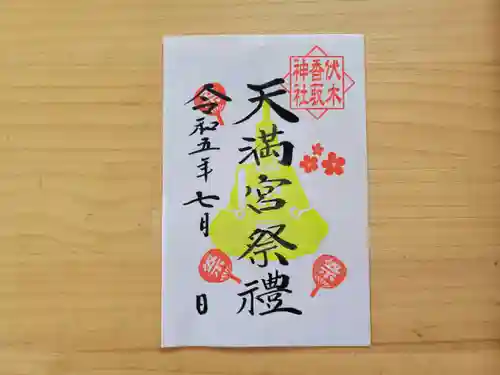 伏木
香取
神社
天満宮祭禮
令和五年七月
日
祭
祭